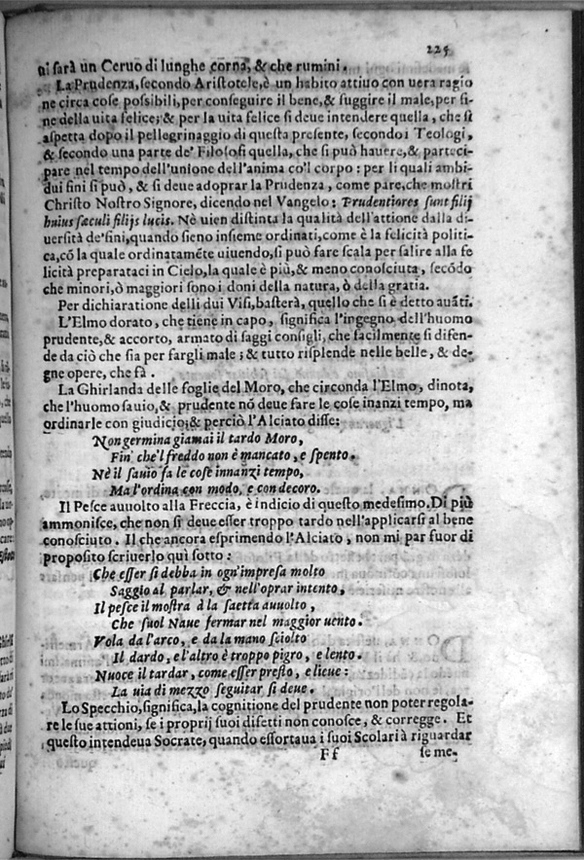 225
ui sarà un Ceruo di lunghe corna, & che rumini.
La Prudenza, secondo Aristotele, è un habito attiuo con uera ragio
ne circa cose possibili, per conseguire il bene, & fuggire il male, per fi-
ne della uita felice; & per la uita felice si deue intendere quella, che si
aspetta dopo il pellegrinaggio di questa presente, secondo i Teologi,
& secondo una parte de' Filosofi quella, che si può hauere, & parteci-
pare nel tempo dell'unione dell'anima co'l corpo: per li quali ambi-
dui fini si può, & si deue adoprar la Prudenza, come pare, che mostri
Christo Nostro Signore, dicendo nel Vangelo: Prudentiores sunt filij
huius sæculi filijs lucis. Nè uien distinta la qualità dell'attione dalla di-
uersità de'fini, quando sieno insieme ordinati, come è la felicità politi-
ca, cō la quale ordinatamēte uiuendo, si può fare scala per salire alla fe
licità preparataci in Cielo, la quale è più, & meno conosciuta, secōdo
che minori, ò maggiori sono i doni della natura, ò della gratia.
Per dichiaratione delli dui Visi, basterà, quello che si è detto auāti.
L'Elmo dorato, che tiene in capo, significa l'ingegno dell'huomo
prudente, & accorto, armato di saggi consigli, che facilmente si difen-
de da ciò che sia per fargli male; & tutto risplende nelle belle, & de-
gne opere, che fà.
La Ghirlanda delle foglie del Moro, che circonda l'Elmo, dinota,
che l'huomo sauio, & prudente nō deue fare le cose inanzi tempo, ma
ordinarle con giudicio; & perciò l'Alciato disse:
Non germina giamai il tardo Moro,
Fin che'l freddo non è mancato, e spento.
Nè il sauio fa le cose innanzi tempo,
Ma l'ordina con modo, e con decoro.
Il Pesce auuolto alla Freccia, è indicio di questo medesimo. Di più
ammonisce, che non si deue esser troppo tardo nell'applicarsi al bene
conosciuto. Il che ancora esprimendo l'Alciato, non mi par fuor di
proposito scriuerlo qui sotto:
Che esser si debba in ogn'impresa molto
Saggio al parlar, & nell'oprar intento,
Il pesce il mostra à la saetta auuolto,
Che suol Naue fermar nel maggior uento.
Vola da l'arco, e da la mano sciolto
Il dardo, e l'altro è troppo pigro, e lento.
Nuoce il tardar, come esser presto, e lieue:
La uia di mezzo seguitar si deue.
Lo Specchio, significa, la cognitione del prudente non poter regola-
re le sue attioni, se i proprij suoi difetti non conosce, & corregge. Et
questo intendeua Socrate, quando essortaua i suoi Scolari à riguardar
F f
se me-